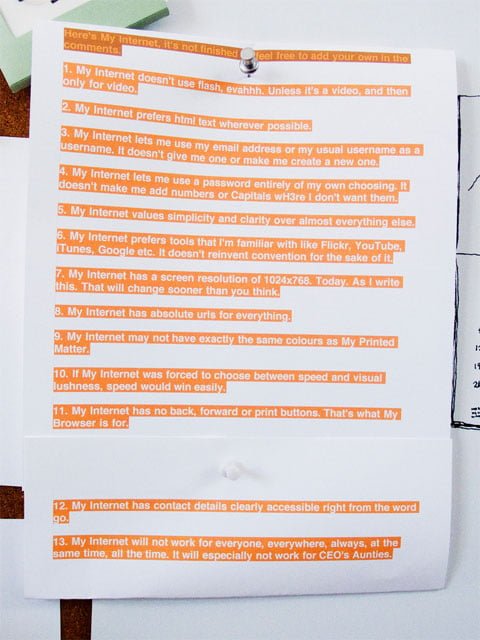 Here's My Internet, it's not finished feel free to add your own in the
comments.
1. My Internet doesn't use flash, evahhh. Unless it's a video, and then
only for video.
2. My Internet prefers html text wherever possible.
3. My Internet lets me use my email address or my usual username as a
username. It doesn't give me one or make me create a new one.
4. My Internet lets me use a password entirely of my own choosing. It
doesn't make me add numbers or Capitals wH3re I don't want them.
5. My Internet values simplicity and clarity over almost everything else.
6. My Internet prefers tools that I'm familiar with like Flickr, YouTube,
iTunes, Google etc. It doesn't reinvent convention for the sake of it.
7. My Internet has a screen resolution of 1024x768. Today. As I write
this. That will change sooner than you think.
8. My Internet has absolute urls for everything.
9. My Internet may not have exactly the same colours as My Printed
Matter.
10. If My Internet was forced to choose between speed and visual
lushness, speed would win easily.
11. My Internet has no back, forward or print buttons. That's what My
Browser is for.
12. My Internet has contact details clearly accessible right from the word
go.
13. My Internet will not work for everyone, everywhere, always, at the
same time, all the time. It will especially not work for CEO's Aunties.